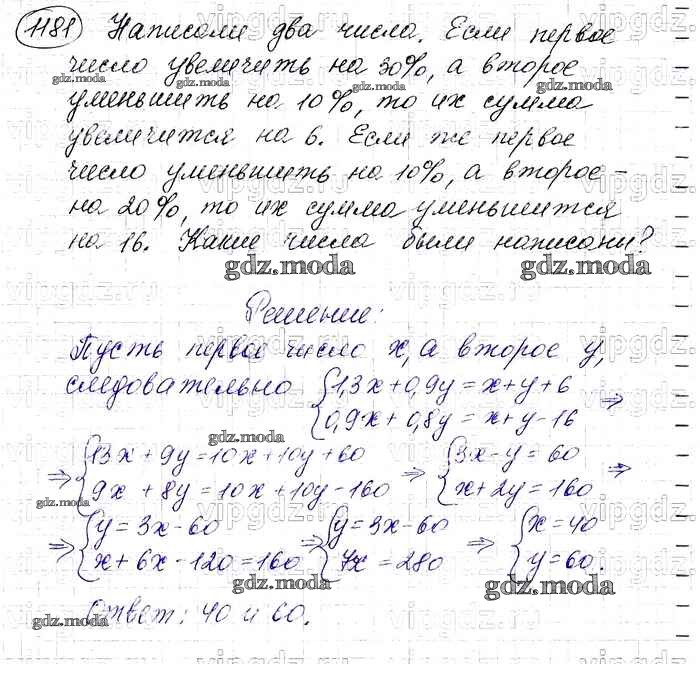 1181 Написали два числа. Если первое
число увеличить на 30%, а второе
уменьшить на 10%, то их сумма
увеличится на 6. Если же первое
число уменьшить на 10%, а второе -
на 20%, то их сумма уменьшится
на 16. Какие числа были написаны?
Решение:
Пусть первое число x, а второе y,
следовательно { 1,3x + 0,9y = x + y + 6
0,9x + 0,8y = x + y - 16 ⇒
⇒ { 13x + 9y = 10x + 10y + 60
9x + 8y = 10x + 10y - 160 ⇒ { 3x - y = 60
x + 2y = 160 ⇒
⇒ { y = 3x - 60
x + 6x - 120 = 160 ⇒ { y = 3x - 60
7x = 280 ⇒ { x = 40
y = 60.
Ответ: 40 и 60.
gdz.moda
vipgdz.ru